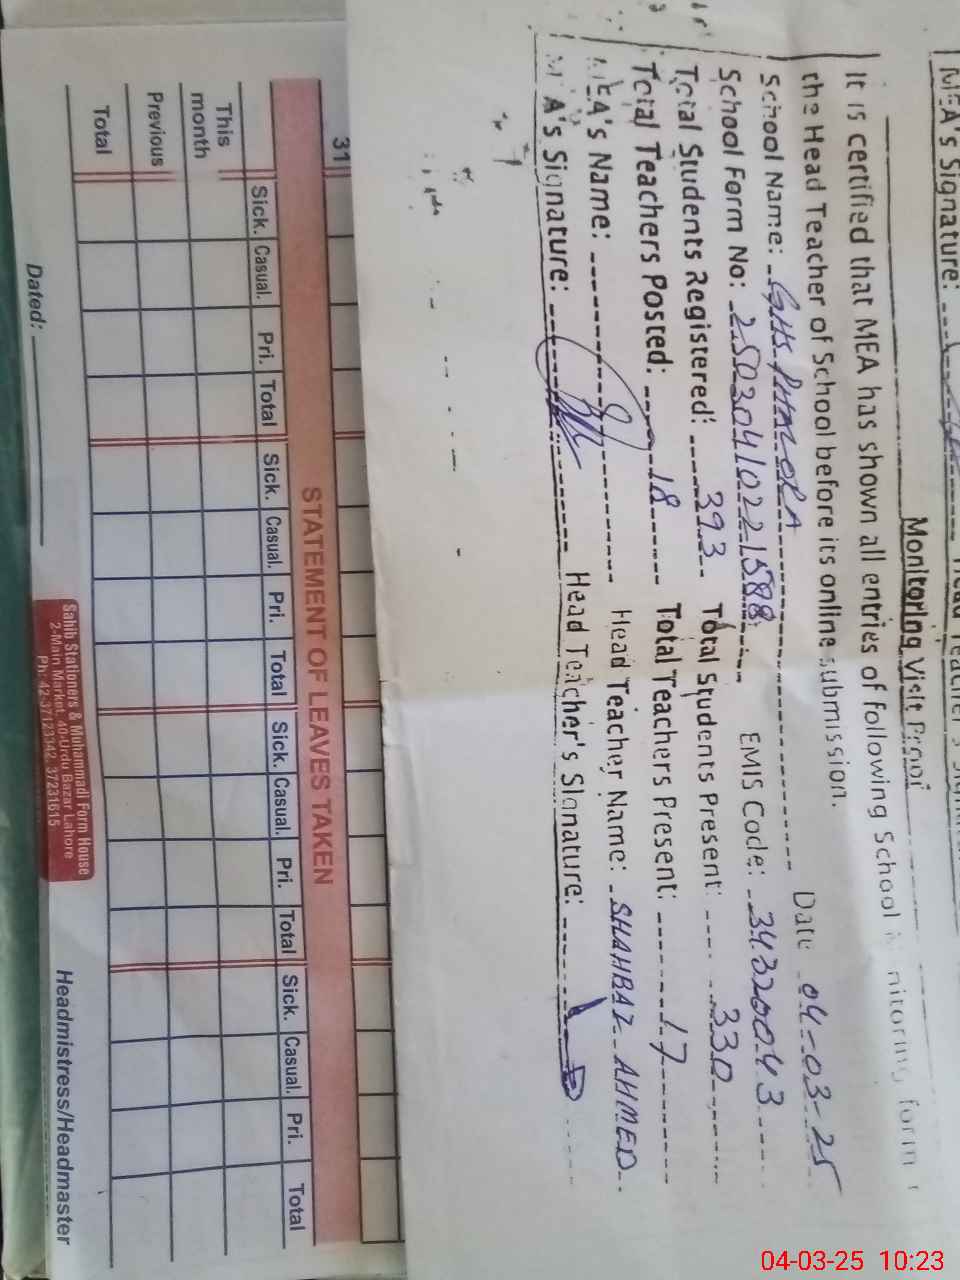 MEA's Signature:
Monitoring Visit Proof
It is certified that MEA has shown all entries of following School
the Head Teacher of School before its online submission.
School Name: GHS PHALORA Date 04-03-25
School Form No: 2503041022158 EMIS Code: 34320043
Total Students Registered: 393 Total Students Present: 330
Total Teachers Posted: 18 Total Teachers Present: 17
MEA's Name: Head Teacher Name: SHAHBAZ AHMED
MEA's Signature: Head Teacher's Signature:
31
STATEMENT OF LEAVES TAKEN
Sick. Casual. Pri. Total Sick. Casual. Pri. Total Sick. Casual. Pri. Total Sick. Casual. Pri. Total
This month
Previous
Total
Sahib Stationers & Muhammadi Form House
2-Main Market, 40-Urdu Bazar Lahore
Ph: 42-37123142, 37231615
Dated: Headmistress/Headmaster
04-03-25 10:23